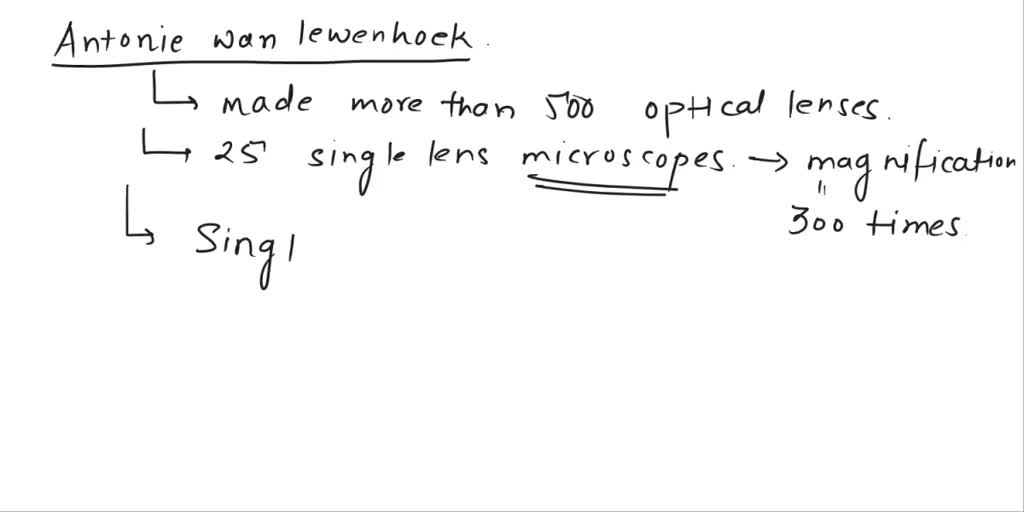 Antonie wan lewenhoek.
↳ made more than 500 optical lenses.
↳ 25 single lens microscopes. → magnification
"
300 times.
↳ Singl